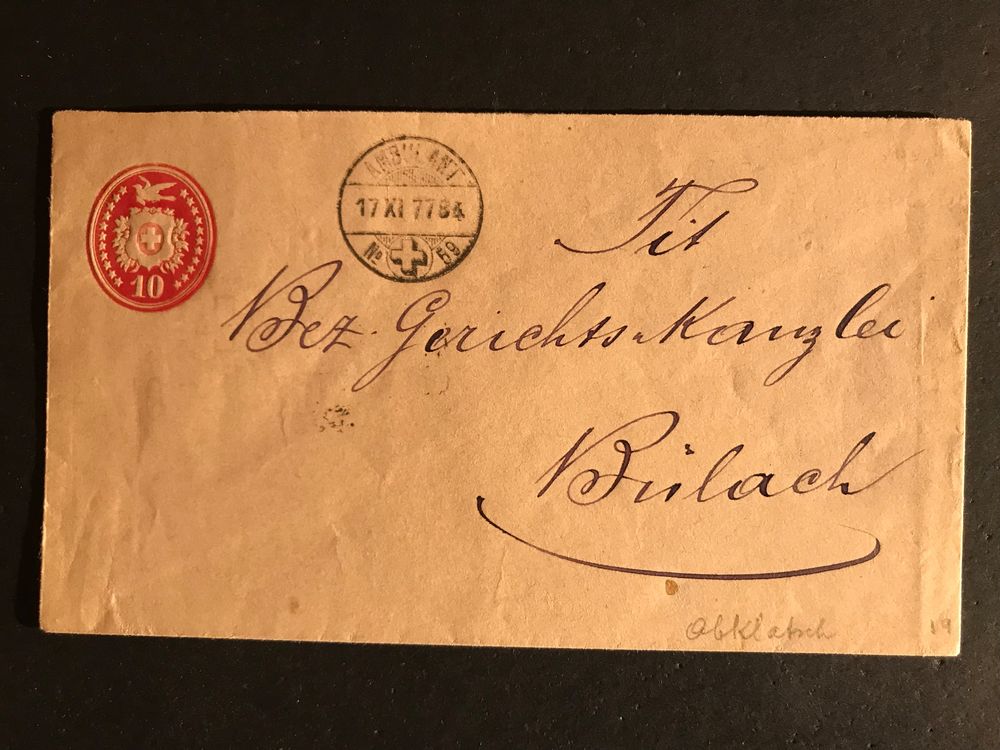 10
AMBULANT
17 XI 77 84
No 59
Tit
Bez. Gerichts-Kanzlei
Bülach
Abklatsch
19